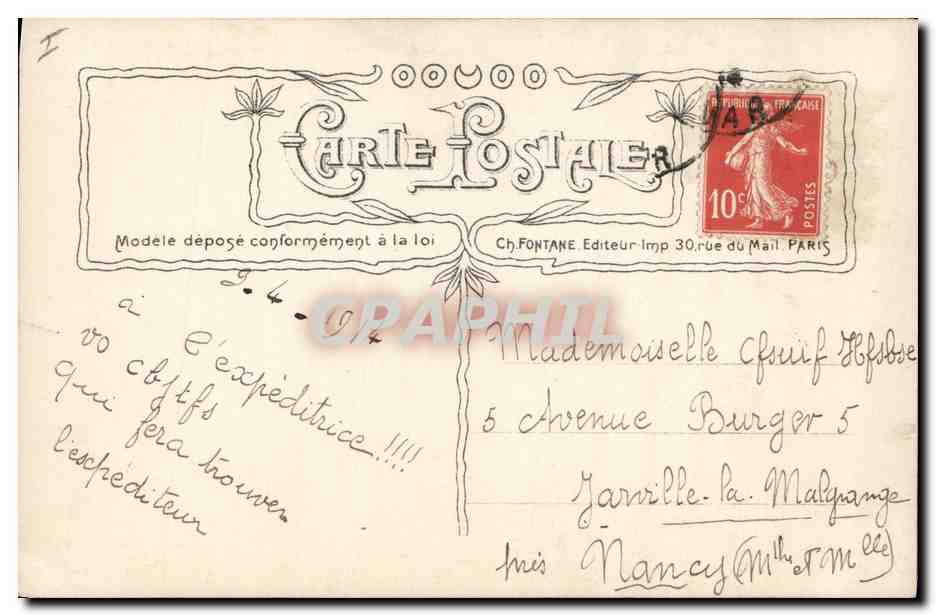 I
CARTE POSTALE
REPUBLIQUE FRANÇAISE
10c
POSTES
Modèle déposé conformément à la loi
Ch. FONTANE. Editeur-Imp 30, rue du Mail. PARIS
CPAPHIL
9-4-
à l'éxpéditrice!!!!
vo cbjtfs
qui fera trouver
l'expéditeur
Mademoiselle Cfsuif Hfsbse
5 Avenue Burger 5
Jarville-la-Malgrange
près Nancy (Mthe et Mlle)